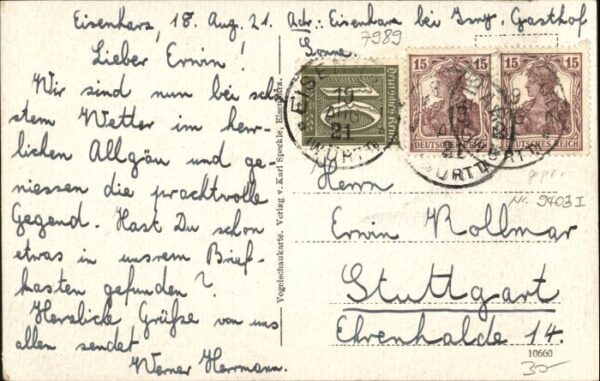 Eisenharz, 18. Aug. 21. Adr.: Eisenharz bei Isny, Gasthof
Sonne.
Lieber Erwin!
Wir sind nun bei schö
stem Wetter im herr-
lichen Allgäu und ge-
niessen die prachtvolle
Gegend. Hast Du schon
etwas in unsrem Brief-
kasten gefunden?
Herzliche Grüße von uns
allen sendet
Werner Herrmann.
Vogelschaukarte. Verlag v. Karl Speckle, Eisenharz.
7989
10
15 15
15 15
DEUTSCHES REICH
DEUTSCHES REICH
EISENHARZ
19
21
WÜRTT
Herrn
Nr. 9403 I
Erwin Rollmar
Stuttgart
Ehrenhalde 14.
10660